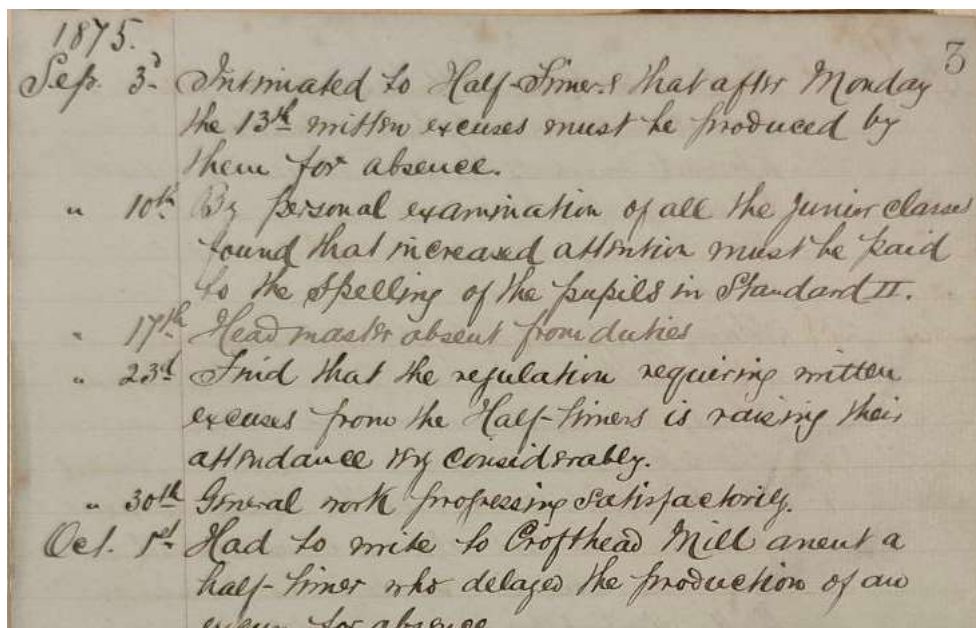 1875.
3
Sep. 3d Intimated to Half-Timers that after Monday
the 13th written excuses must be produced by
them for absence.
" 10th By personal examination of all the Junior classes
found that increased attention must be paid
to the spelling of the pupils in Standard II.
" 17th Headmaster absent from duties
" 23d Find that the regulation requiring written
excuses from the Half-timers is raising their
attendance very considerably.
" 30th General work progressing satisfactorily.
Oct. 1st Had to write to Crofthead Mill anent a
half-timer who delayed the production of an
excuse for absence